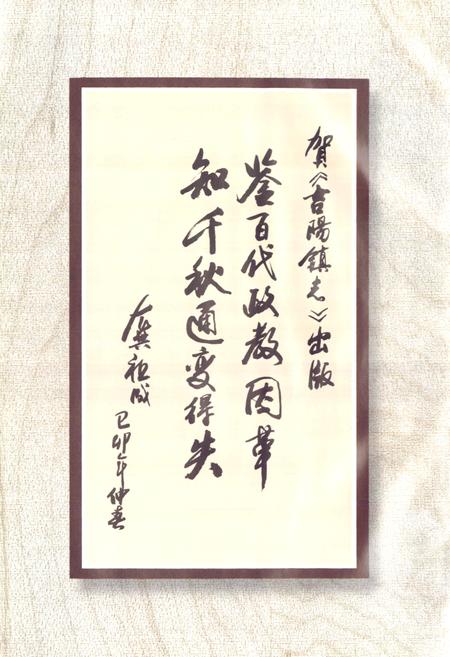 賀《吉陽鎮志》出版
鉴百代政教因革
知千秋通变得失
龚祖成
己卯年仲春